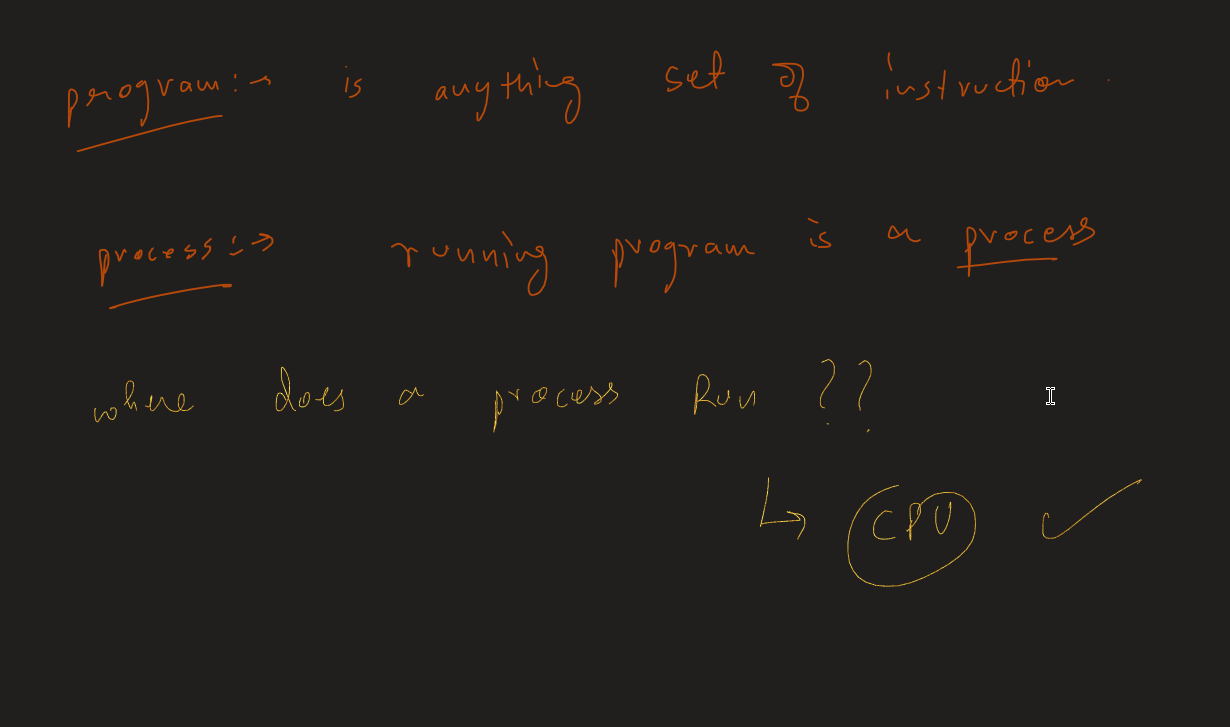 program:→ is anything set of instruction.
process:→ running program is a process
where does a process Run ??
↳ CPU ✓